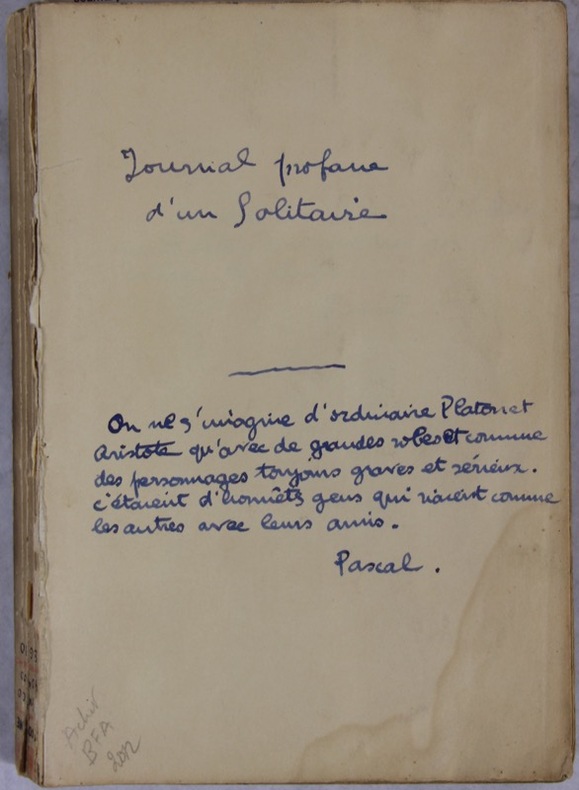 Journal profane
d'un Solitaire
On ne s'imagine d'ordinaire Platon et
Aristote qu'avec de grandes robes et comme
des personnages toujours graves et sérieux.
c'étaient d'honnêtes gens qui riaient comme
les autres avec leurs amis.
Pascal.
BFA
2012